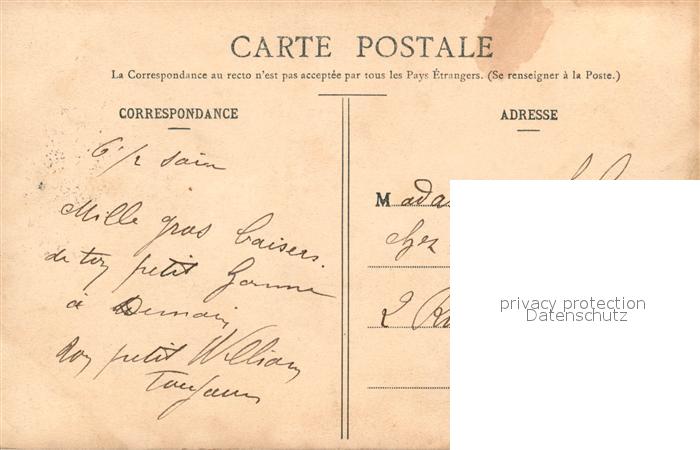 CARTE POSTALE
La Correspondance au recto n'est pas acceptée par tous les Pays Étrangers. (Se renseigner à la Poste.)
CORRESPONDANCE
ADRESSE
6 1/2 soir
Mille gros baisers.
de ton petit homme
à Demain
ton petit William
Toujours
Mada
chez
2 R
privacy protection
Datenschutz